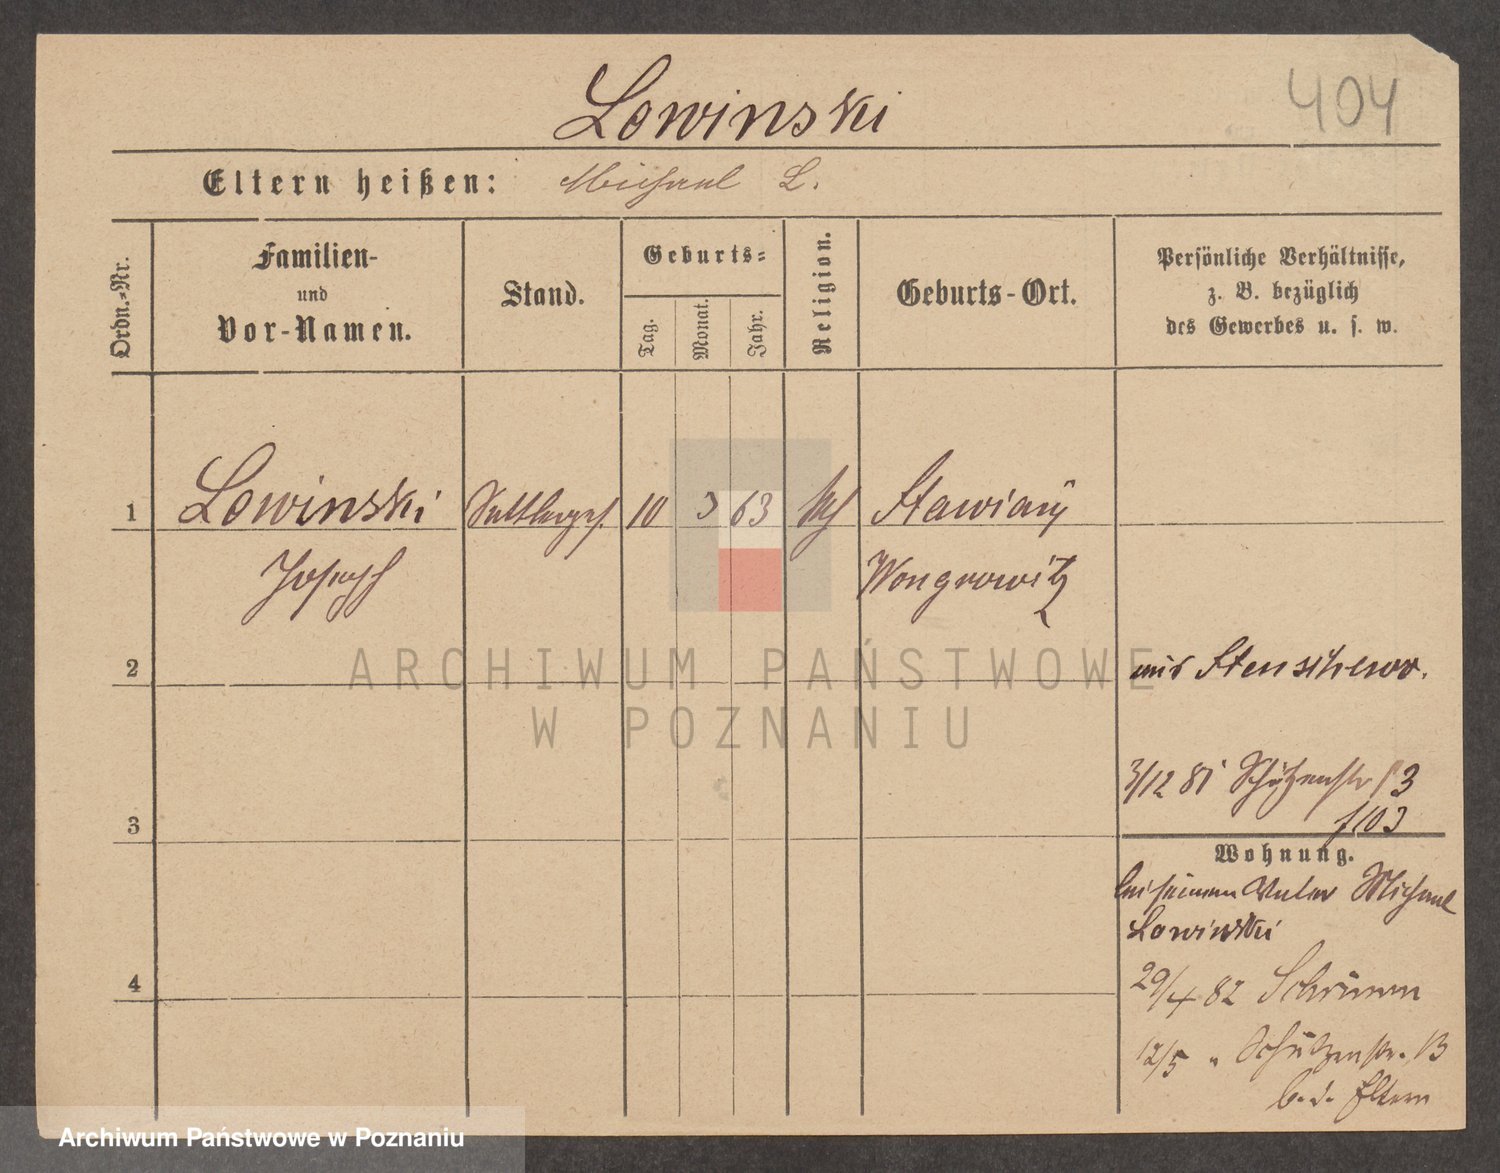 Lowinski
404
Eltern heißen: Michael L.
Ordn.-Nr.
Familien-
und
Vor-Namen.
Stand.
Geburts-
Tag.
Monat.
Jahr.
Religion.
Geburts-Ort.
Persönliche Verhältnisse,
z. B. bezüglich
des Gewerbes u. s. w.
1 Lowinski Sattlergs. 10 3 63 Stawiany
Joseph Wongrowitz
2 aus Stenschewo.
3/12 81 Schützenstr 13
f 103
3
Wohnung.
bei seinem Vater Michael
Lowinski
4
29/4 82 Schrimm
12/5 " Schützenstr. 13
b. d. Eltern
ARCHIWUM PAŃSTWOWE
W POZNANIU
Archiwum Państwowe w Poznaniu